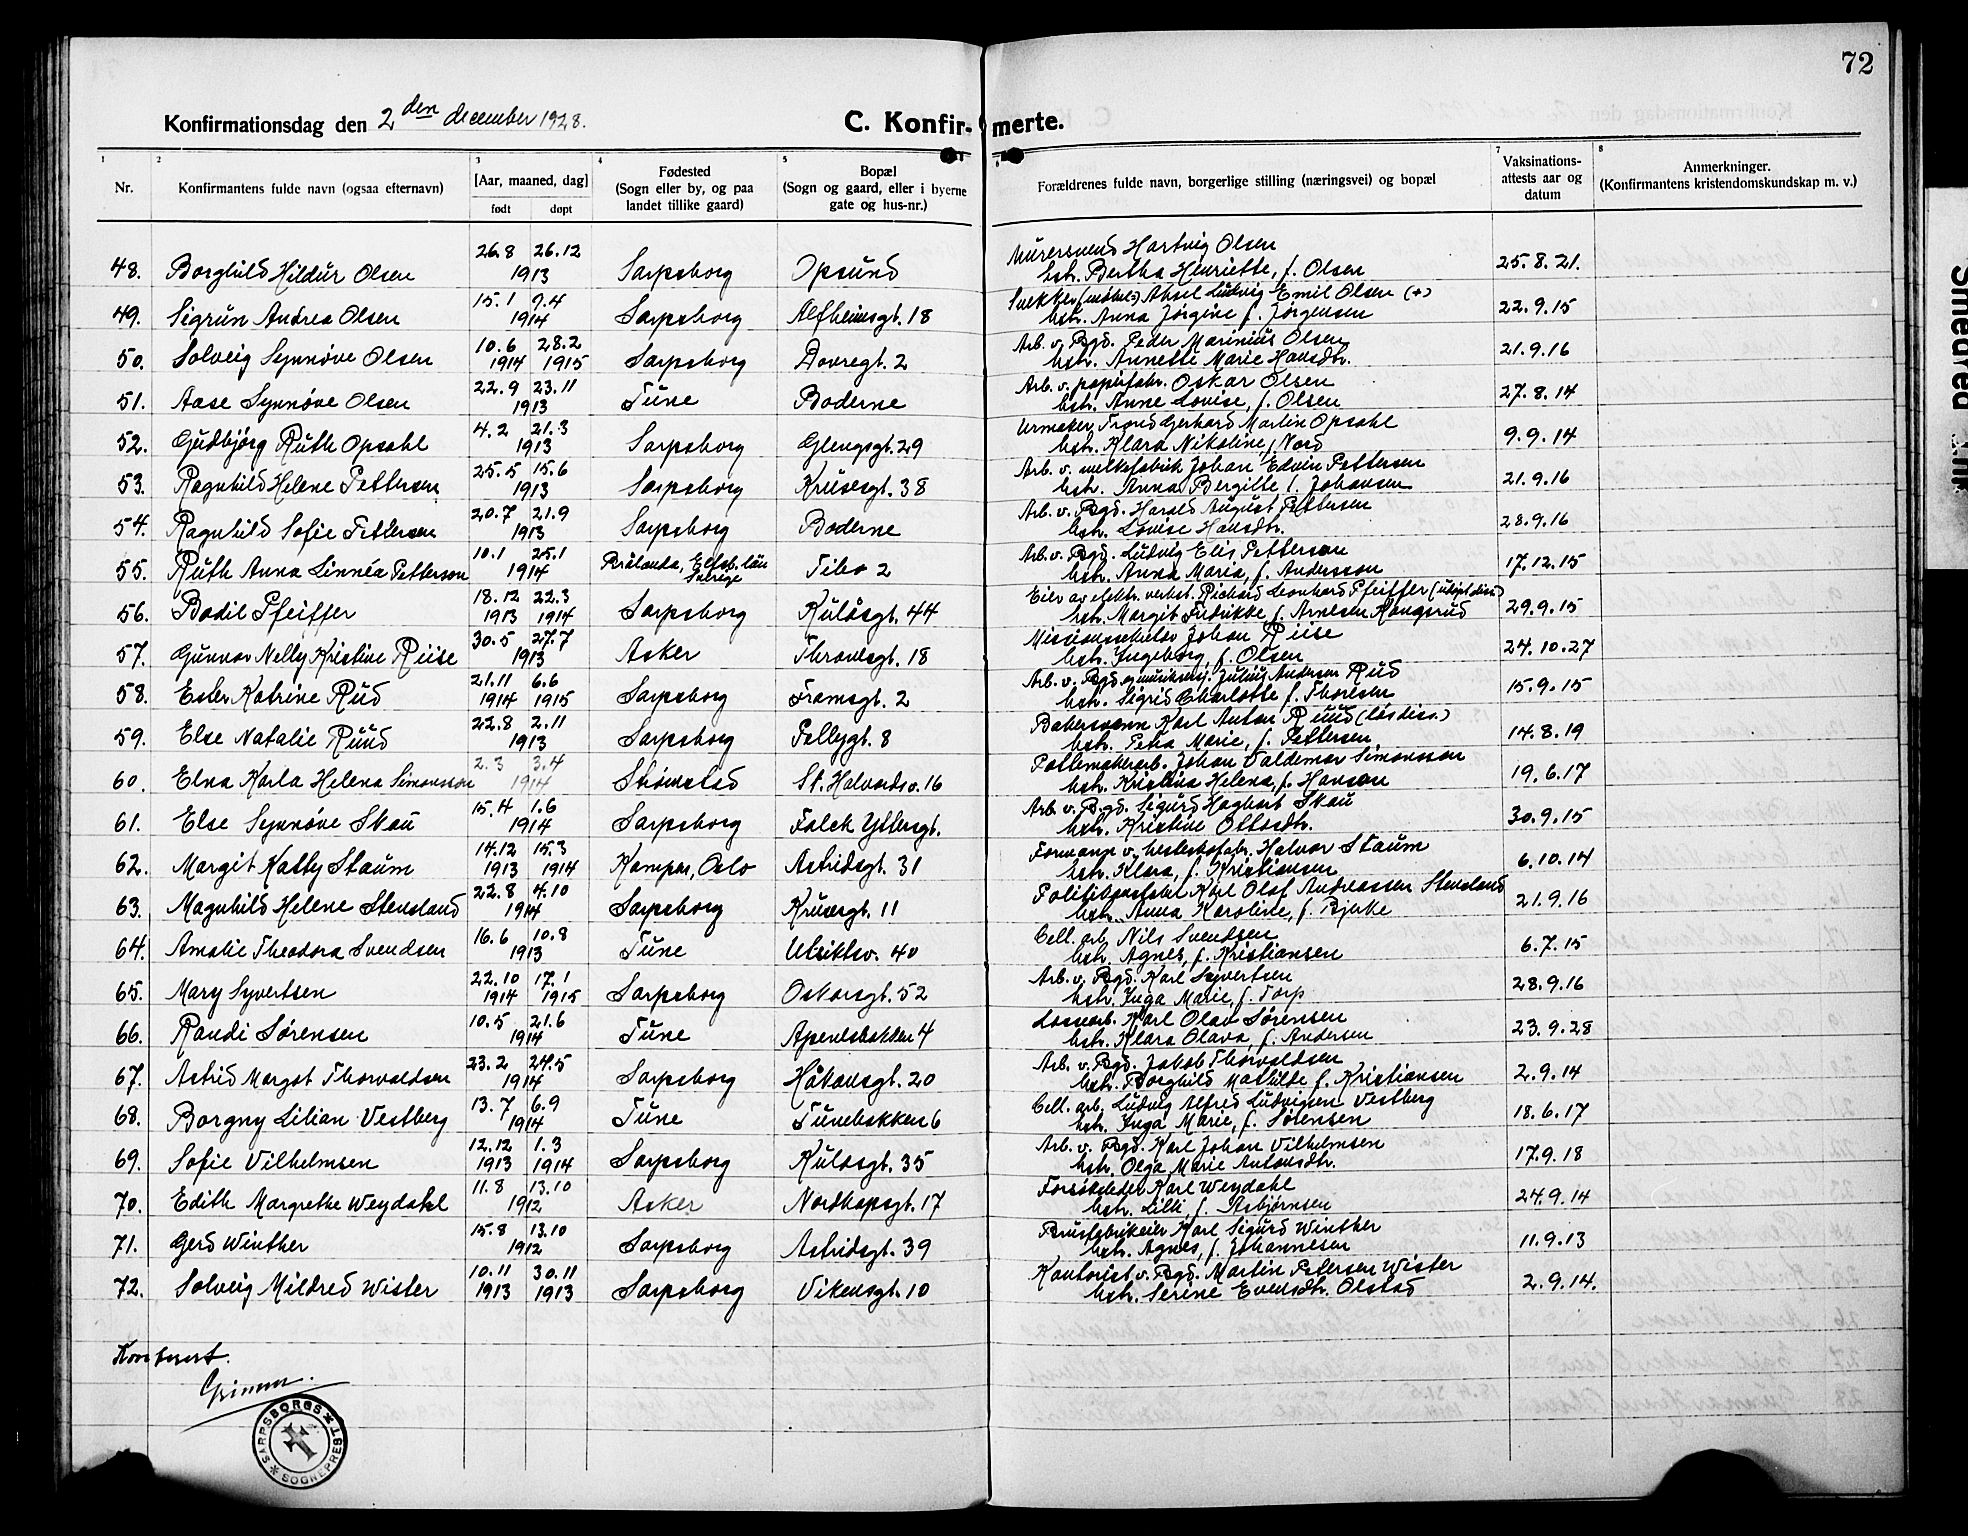 72
Konfirmationsdag den 2den december 1928.
C. Konfirmerte.
1 2 3 4 5 6 7 8
Nr. Konfirmantens fulde navn (ogsaa efternavn) [Aar, maaned, dag] født døpt Fødested (Sogn eller by, og paa landet tillike gaard) Bopæl (Sogn og gaard, eller i byerne gate og hus-nr.) Forældrenes fulde navn, borgerlige stilling (næringsvei) og bopæl Vaksinations-attests aar og datum Anmerkninger. (Konfirmantens kristendomskundskap m. v.)
48. Borghild Hildur Olsen 26.8 26.12 1913 Sarpsborg Opsund Murersvend Hartvig Olsen hstr. Bertha Henriette, f. Olsen 25.8.21.
49. Sigrun Andrea Olsen 15.1 9.4 1914 Sarpsborg Alfheimsgt. 18 Snekker (møbel) Aksel Ludvig Emil Olsen (+) hstr. Anna Jørgine f. Jørgensen 22.9.15
50. Solveig Synnøve Olsen 10.6 1914 28.2 1915 Sarpsborg Dovregt. 2 Arb. v. Bgd. Peder Marinius Olsen hstr. Annette Marie Hansdtr. 21.9.16
51. Aase Synnøve Olsen 22.9 23.11 1913 Tune Boderne Arb. v. papirfabr. Oskar Olsen hstr. Anne Lovise, f. Olsen 27.8.14
52. Gudbjørg Ruth Opsahl 4.2 21.3 1913 Sarpsborg Glengsgt. 29 Urmaker Trond Gerhard Martin Opsahl hstr. Klara Nikoline, f. Nord 9.9.14
53. Ragnhild Helene Pettersen 25.5 15.6 1913 Sarpsborg Krusesgt. 38 Arb. v. melkefabrik Johan Edvin Pettersen hstr. Anna Bergitte f. Johansen 21.9.16
54. Ragnhild Sofie Pettersen 20.7 21.9 1913 Sarpsborg Boderne Arb. v. Bgd. Harald August Pettersen hstr. Lovise Hansdtr. 28.9.16
55. Ruth Anna Linnéa Petterson 10.1 25.1 1914 Brålanda, Elfsb. län Sverige Tibo 2 Arb. v. Bgd. Ludvig Elis Petterson hstr. Anna Maria, f. Andersson 17.12.15
56. Bodil Pfeiffer 18.12 1913 22.3 1914 Sarpsborg Kulåsgt. 44 Eier av elektr. verkst. Richard Leonhard Pfeiffer hstr. Margit Fredrikke f. Arnesen Haugsrud 29.9.15
57. Gunvor Nelly Kristine Riise 30.5 27.7 1913 Asker Thronesgt. 18 Missionssekretær Johan Riise hstr. Ingeborg, f. Olsen 24.10.27
58. Ester Katrine Rud 21.11 1914 6.6 1915 Sarpsborg Framsgt. 2 Arb. v. Bgd. og Julius Andersen Rud hstr. Sigrid Charlotte f. Thoresen 15.9.15
59. Else Natalie Ruud 22.8 2.11 1913 Sarpsborg Pellygt. 8 Bakersvenn Karl Anton Ruud hstr. Petra Marie, f. Pettersen 14.8.19
60. Elna Karla Helena Simonsson 2.3 3.4 1914 Strømstad St. Halvardsv. 16 Pottemakerarb. Johan Valdemar Simonsson hstr. Kristina Helena, f. Hanson 19.6.17
61. Else Synnøve Skau 15.4 1.6 1914 Sarpsborg Falck Yttersgt. Arb. v. Bgd. Sigurd Hagbart Skau hstr. Kristine Ottosdtr. 30.9.15
62. Margit Katty Staum 14.12 1913 15.3 1914 Kampen, Oslo Astridsgt. 31 Formann v. Halvor Staum hstr. Klara, f. Kristiansen 6.10.14
63. Magnhild Helene Stensland 22.8 4.10 1914 Sarpsborg Krusesgt. 11 Politikonstabel Karl Olaf Andreassen Stensland hstr. Anna Karoline, f. Bjerke 21.9.16
64. Amalie Theodora Svendsen 16.6 10.8 1913 Tune Utsiktsv. 40 Cell. arb. Nils Svendsen hstr. Agnes, f. Kristiansen 6.7.15
65. Mary Syvertsen 22.10 1914 17.1 1915 Sarpsborg Oskarsgt. 52 Arb. v. Bgd. Karl Syvertsen hstr. Inga Marie, f. Torp 28.9.16
66. Randi Sørensen 10.5 21.6 1914 Tune Apenesbakken 4 Lossearb. Karl Olav Sørensen hstr. Klara Olava, f. Andersen 23.9.28
67. Astrid Margot Thorvaldsen 23.2 24.5 1914 Sarpsborg Håkonsgt. 20 Arb. v. Bgd. Jakob Thorvaldsen hstr. Borghild Mathilde f. Kristiansen 2.9.14
68. Borgny Lilian Vestberg 13.7 6.9 1914 Tune Tunebakken 6 Cell. arb. Ludvig Alfred Ludvigsen Vestberg hstr. Inga Marie, f. Sørensen 18.6.17
69. Sofie Vilhelmsen 12.12 1913 1.3 1914 Sarpsborg Kulåsgt. 35 Arb. v. Bgd. Karl Johan Vilhelmsen hstr. Olga Marie Antonsdtr. 17.9.18
70. Edith Margrethe Weydahl 11.8 13.10 1912 Asker Nordkapsgt. 17 Forsøksleder Karl Weydahl hstr. Lilli, f. Asbjørnsen 24.9.14
71. Gerd Winther 15.8 13.10 1912 Sarpsborg Astridsgt. 39 Brusfabrikeier Karl Sigurd Winther hstr. Agnes, f. Johannesen 11.9.13
72. Solveig Mildred Wister 10.11 1913 30.11 1913 Sarpsborg Vikensgt. 10 Kontorist v. Bgd. Martin Petersen Wister hstr. Serine Evensdtr. Olstad 2.9.14.
Konferert.
Grimm.
SARPSBORGS SOGNEPREST